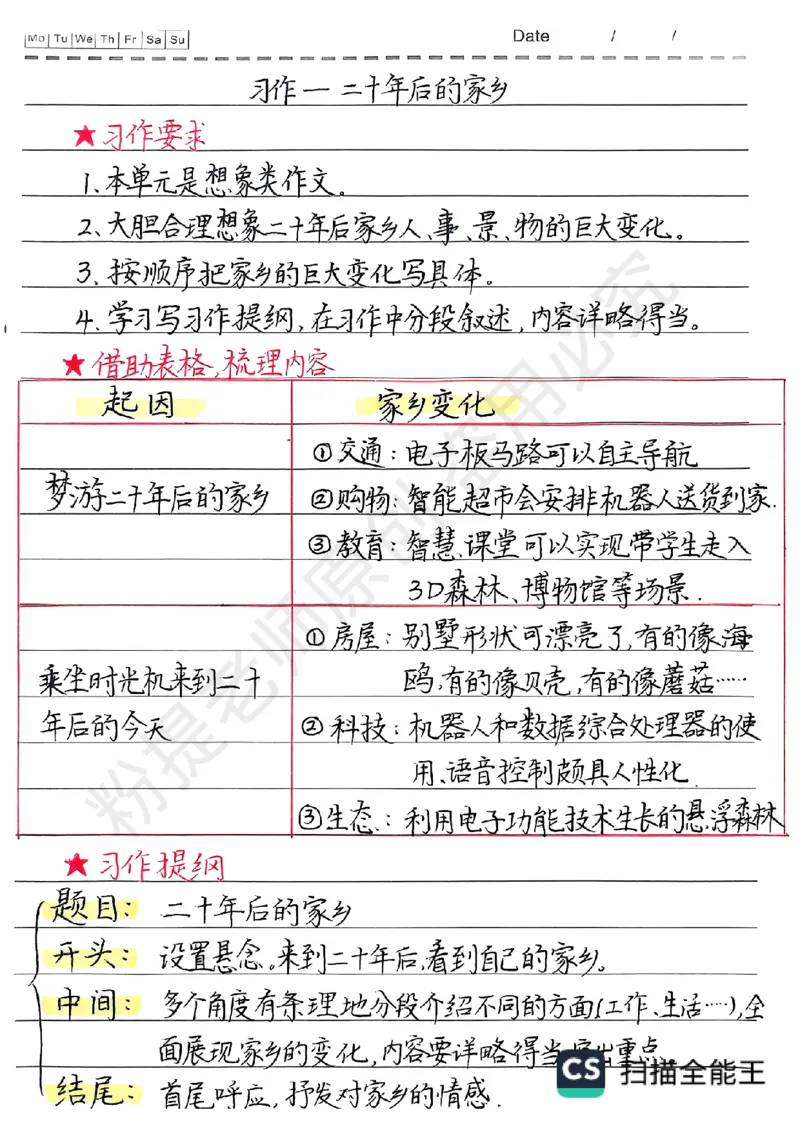 Mo Tu We Th Fr Sa Su
Date / /
习作一 二十年后的家乡
★习作要求
1、本单元是想象类作文。
2、大胆合理想象二十年后家乡人、事、景、物的巨大变化。
3、按顺序把家乡的巨大变化写具体。
4、学习写习作提纲,在习作中分段叙述,内容详略得当。
★借助表格,梳理内容
起因 家乡变化
①交通:电子板马路可以自主导航
梦游二十年后的家乡 ②购物:智能超市会安排机器人送货到家.
③教育:智慧课堂可以实现带学生走入
3D森林、博物馆等场景.
①房屋:别墅形状可漂亮了,有的像海
乘坐时光机来到二十 鸥,有的像贝壳,有的像蘑菇……
年后的今天 ②科技:机器人和数据综合处理器的使
用、语音控制颇具人性化.
③生态:利用电子功能技术生长的悬浮森林
★习作提纲
题目:二十年后的家乡
开头:设置悬念。来到二十年后,看到自己的家乡。
中间:多个角度有条理地分段介绍不同的方面(工作、生活…),全
面展现家乡的变化,内容要详略得当,突出重点。
结尾:首尾呼应,抒发对家乡的情感.
粉提老师原创 盗用必究
CS 扫描全能王